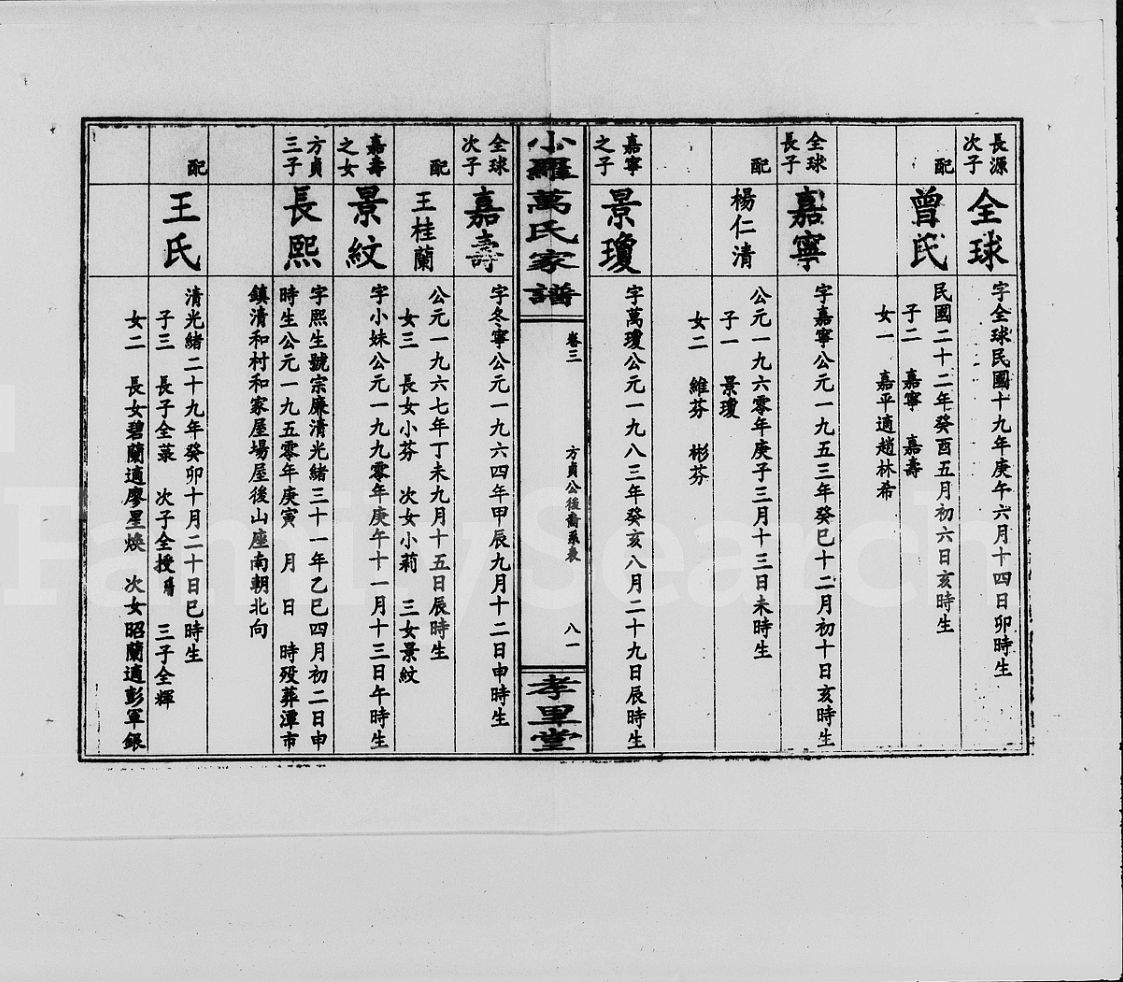 長源
次子
全球
字全球民國十九年庚午六月十四日卯時生
配
曾氏
民國二十二年癸酉五月初六日亥時生
子二 嘉寧 嘉壽
女一 嘉平適趙林希
全球
長子
嘉寧
字嘉寧公元一九五三年癸巳十二月初十日亥時生
配
楊仁清
公元一九六零年庚子三月十三日未時生
子一 景瓊
女二 維芬 彬芬
嘉寧
之子
景瓊
字萬瓊公元一九八三年癸亥八月二十九日辰時生
小羅萬氏家譜
卷三
方貞公後裔系表
八一
孝里堂
全球
次子
嘉壽
字冬寧公元一九六四年甲辰九月十二日申時生
配
王桂蘭
公元一九六七年丁未九月十五日辰時生
女三 長女小芬 次女小莉 三女景紋
嘉壽
之女
景紋
字小妹公元一九九零年庚午十一月十三日午時生
方貞
三子
長熙
字熙生號宗廉清光緒三十一年乙巳四月初二日申
時生公元一九五零年庚寅 月 日 時歿葬潭市
鎮清和村和家屋場屋後山座南朝北向
配
王氏
清光緒二十九年癸卯十月二十日巳時生
子三 長子全菉 次子全授 三子全輝
女二 長女碧蘭適廖星煥 次女昭蘭適彭軍銀
FamilySearch